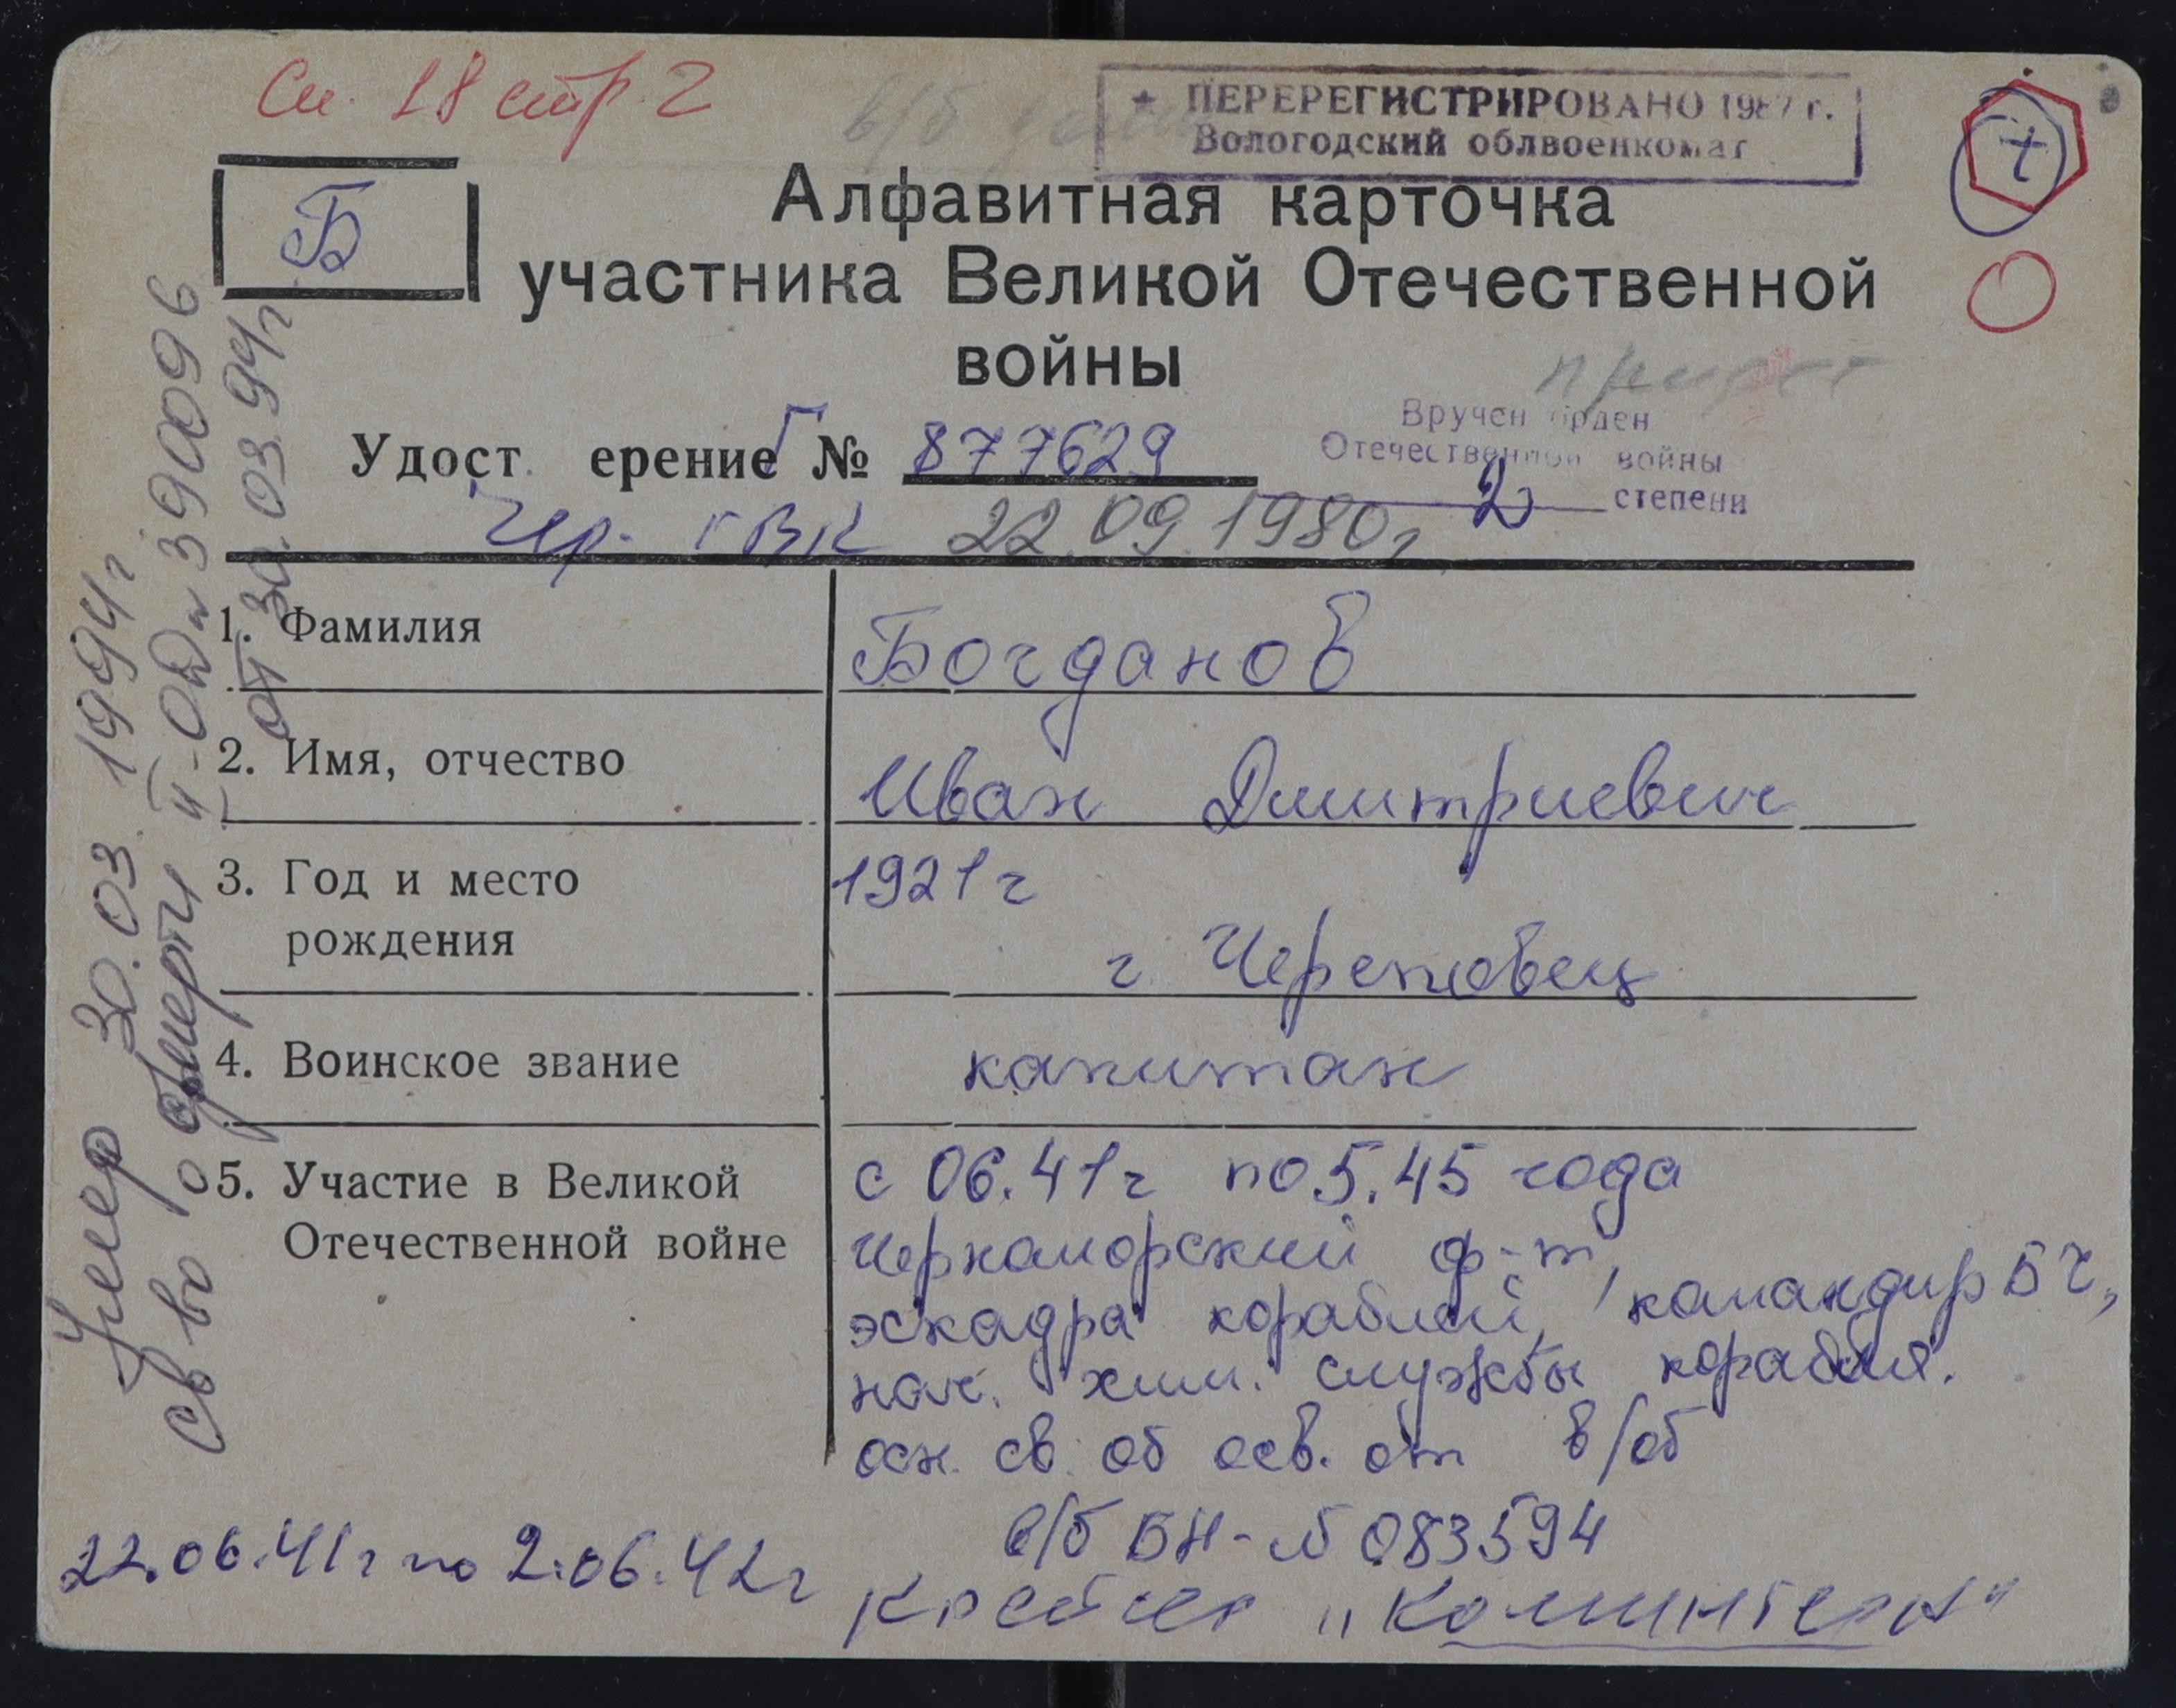 Сп. 18 стр. 2
в/б
★ ПЕРЕРЕГИСТРИРОВАНО 1987 г.
Вологодский облвоенкомат
Б
Алфавитная карточка
участника Великой Отечественной
войны
Вручен орден
Отечественной войны
2 степени
Удост ерение Г № 877629
Чер. ГВК 22.09.1980г
1. Фамилия Богданов
2. Имя, отчество Иван Дмитриевич
3. Год и место 1921г
рождения г. Череповец
4. Воинское звание капитан
5. Участие в Великой с 06.41г по 5.45 года
Отечественной войне Черноморский ф-т,
эскадра кораблей, командир БЧ,
нач. хим. службы корабля.
осн. св. об осв. от в/об
в/б БН-№ 083594
22.06.41г по 2.06.42г Крейсер „Коминтерн"
Умер 30.03.1994г
св во о смерти II-ОД № 390096
от 30.03.94г.